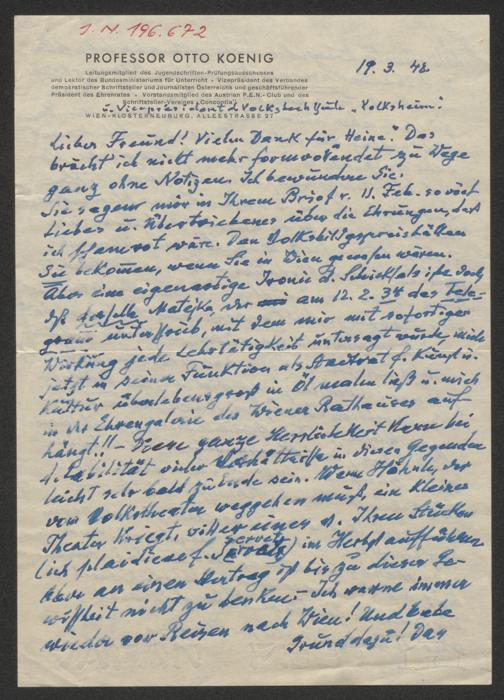 J. N. 196.672
PROFESSOR OTTO KOENIG
Leitungsmitglied des Jugendschriften-Prüfungsausschusses
und Lektor des Bundesministeriums für Unterricht · Vizepräsident des Verbandes
demokratischer Schriftsteller und Journalisten Österreichs und geschäftsführender
Präsident des Ehrenrates · Vorstandsmitglied des Austrian P.E.N.-Club und des
Schriftsteller-Vereines „Concordia"
19. 3. 48.
u. Vizepräsident d Volkshochschule „Volksheim".
WIEN-KLOSTERNEUBURG, ALLEESTRASSE 27
Lieber Freund! Vielen Dank für Heine! Das
brächt ich nicht mehr formvollendet zu Wege
ganz ohne Notizen. Ich bewundere Sie!
Sie sagen mir in Ihrem Brief v. 11. Feb. so viel
Liebes u. Übertriebenes über die Ehrungen, daß
ich rot wäre. Den Volksbildgspreis hätten
Sie bekommen, wenn Sie in Wien gewesen wären.
Aber eine eigenartige Ironie d. Schicksals ists doch,
dß derselbe Matejka, der am 12. 2. 34 das Tele-
gramm unterschrieb, mit dem mir mit sofortiger
Wirkung jede Lehrtätigkeit untersagt wurde, mich
jetzt in seiner Funktion als Stadtrat f. Kunst u.
Kultur überlebensgroß in Öl malen ließ u. mich
in der Ehrengalerie des Wiener Rathauses auf-
hängt!! – Diese ganze Herrlichkeit kann bei
d. Labilität vieler Verhältnisse in diesen Gegenden
leicht sehr bald zu Ende sein. Wenn der
vom Volkstheater weggehen muß, ein kleines
Theater kriegt, will er eines d. Ihren Stücken
(ich plaidiere f. ) im Herbst aufführen
aber an einen Vertrag ist bis zu dieser Ge-
wißheit nicht zu denken. – Ich warne immer
wieder vor Reisen nach Wien! Und habe
Grund dazu! Das